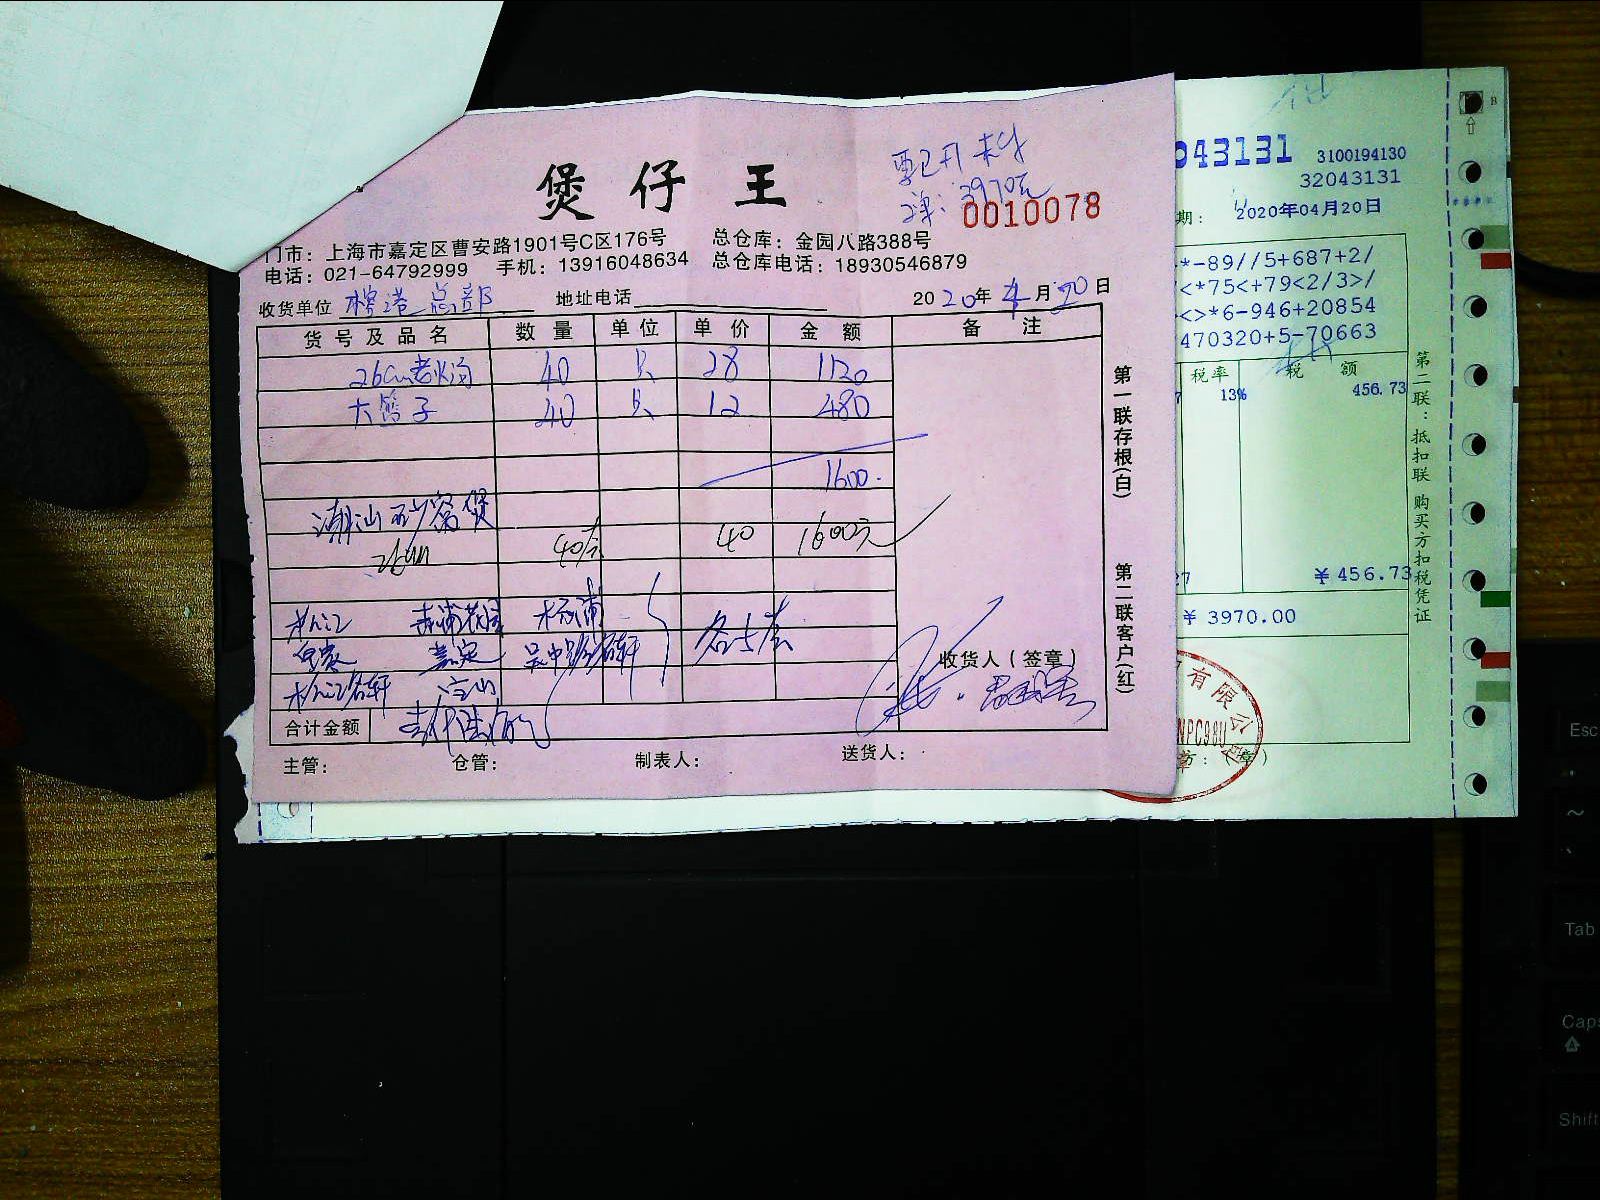 煲仔王
票已开
3970元
0010078
门市：上海市嘉定区曹安路1901号C区176号 总仓库：金园八路388号
电话：021-64792999 手机：13916048634 总仓库电话：18930546879
收货单位 总部 地址电话 2020年4月20日
货号及品名 数量 单位 单价 金额 备注
26cm老火汤 40 只 28 1120
大鸽子 40 只 12 480
1600.
潮汕砂窝煲
26cm 40 40 1600元
松江 杨浦
嘉定 吴中路名轩
松江名轩 宝山
合计金额
收货人（签章）
主管： 仓管： 制表人： 送货人：
第一联存根(白)
第二联客户(红)
043131 3100194130
32043131
期： 2020年04月20日
*-89//5+687+2/
<*75<+79<2/3>/
<>*6-946+20854
470320+5-70663
税率 税额
13% 456.73
￥456.73
￥3970.00
第二联：抵扣联 购买方扣税凭证
有限公
章：（章）
Esc
~
Tab
Caps
Shift